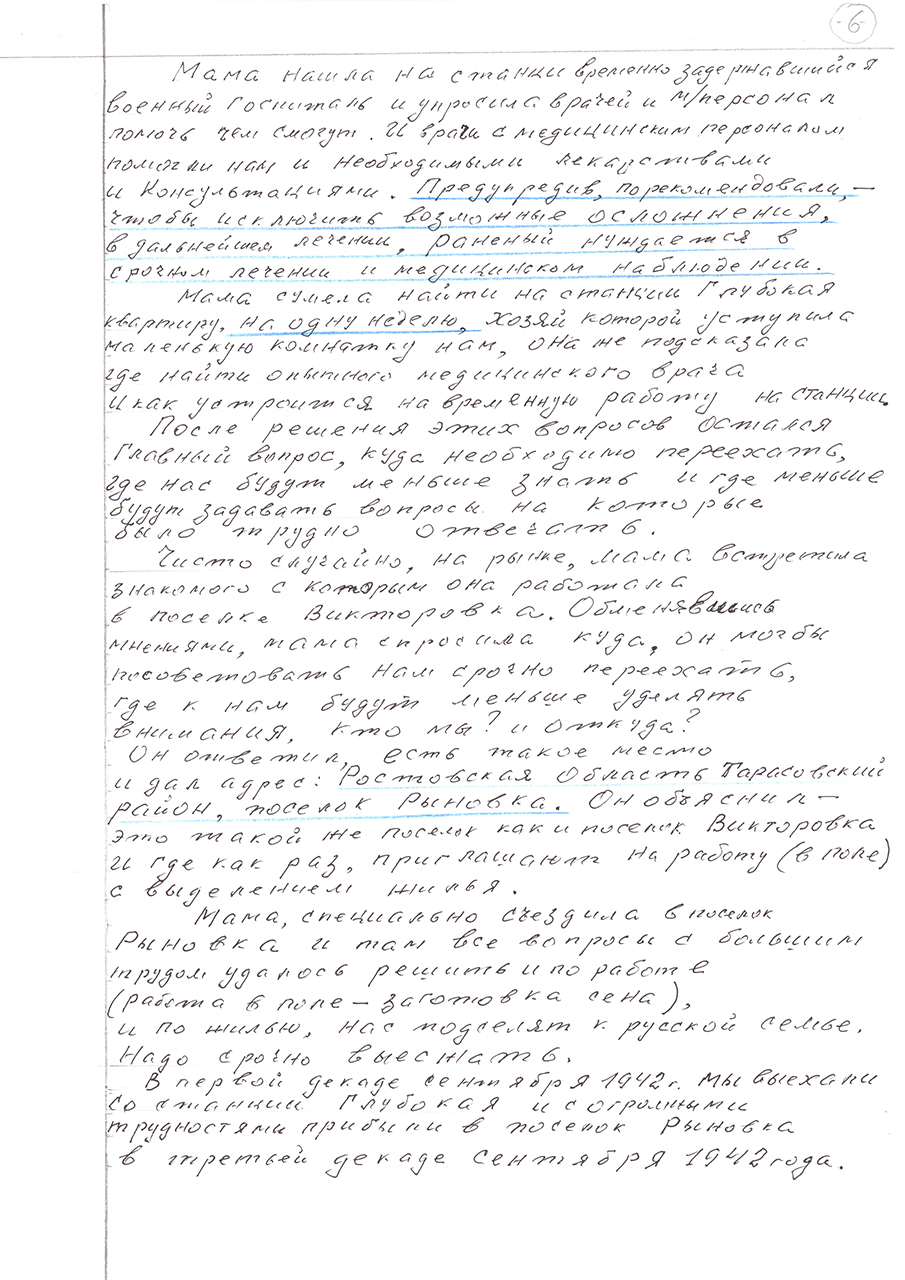 -6-
Мама нашла на станци временно задержавшийся
военный госпиталь и упросила врачей и м/персонал
помочь чем смогут. И врачи с медицинским персоналом
помогли нам и необходимыми лекарствами
и консультациями. Предупредив, порекомендовали, –
чтобы исключить возможные осложнения,
в дальнейшем лечении, раненый нуждается в
срочном лечении и медицинском наблюдении.
Мама сумела найти на станции Глубокая
квартиру, на одну неделю, хозяй которой уступила
маленькую комнатку нам, она же подсказала
где найти опытного медицинского врача
и как устроится на временную работу на станции.
После решения этих вопросов остался
Главный вопрос, куда необходимо переехать,
где нас будут меньше знать и где меньше
будут задавать вопросы на которые
было трудно отвечать.
Чисто случайно, на рынке, мама встретила
знакомого с которым она работала
в поселке Викторовка. Обменявшись
мнениями, мама спросила куда, он мог бы
посоветовать нам срочно переехать,
где к нам будут меньше уделять
внимания, кто мы? и откуда?
Он ответил, есть такое место
и дал адрес: Ростовская Область Тарасовский
район, поселок Рыновка. Он объяснил –
это такой же поселок как и поселок Викторовка
и где как раз, приглашают на работу (в поле)
с выделением жилья.
Мама, специально съездила в поселок
Рыновка и там все вопросы с большим
трудом удалось решить и по работе
(работа в поле – заготовка сена),
и по жилью, нас подселят к русской семье.
Надо срочно выезжать.
В первой декаде сентября 1942 г. мы выехали
со станции Глубокая и с огромными
трудностями прибыли в поселок Рыновка
в третьей декаде сентября 1942 года.